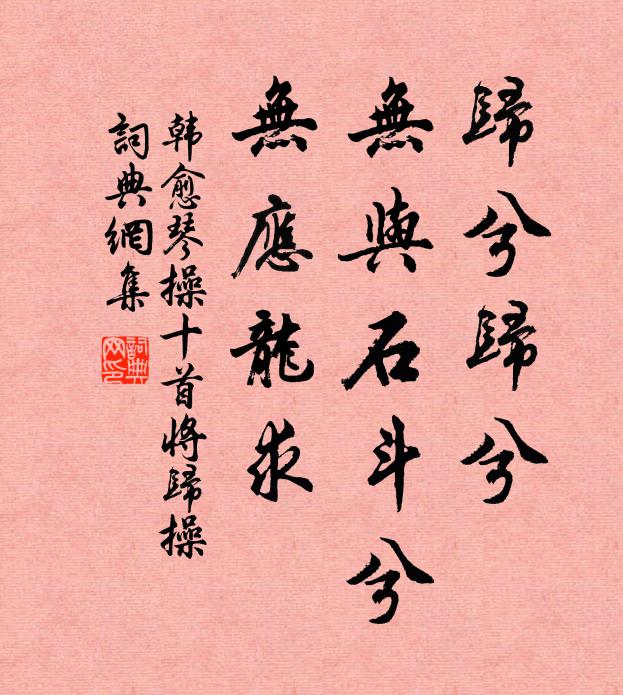 歸兮歸兮
無與石斗兮
無應龍求
韓愈琴操十首將歸操
詞典網集
詞典网印